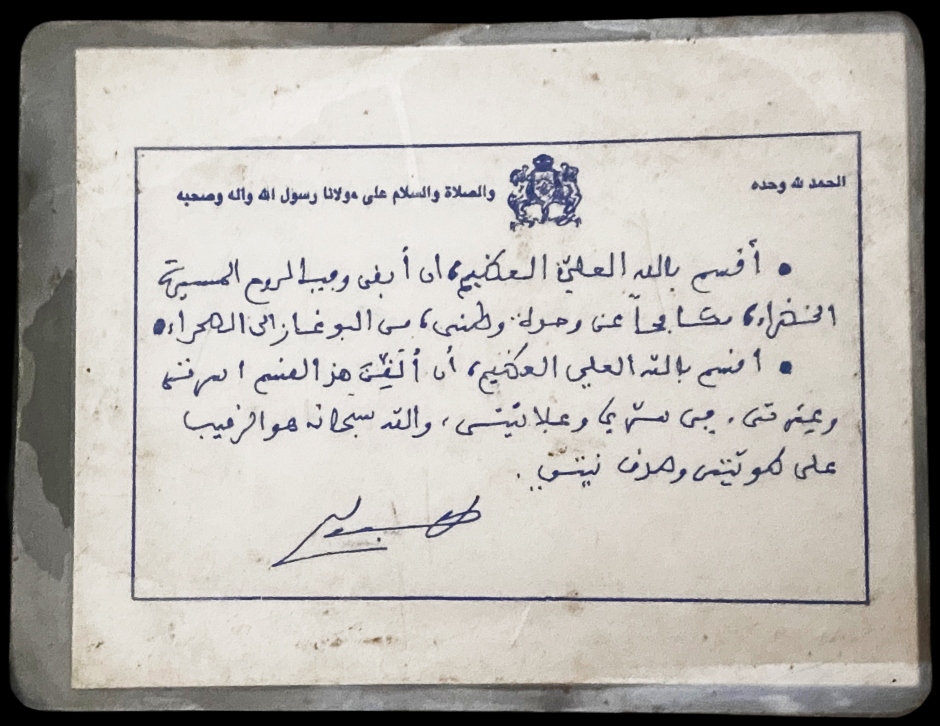 الحمد لله وحده
والصلاة والسلام على مولانا رسول الله وآله وصحبه
• أقسم بالله العليّ العظيم، أن أبقى وفيا لروح المسيرة
الخضراء، مكافحاً عن وحدة وطني، من البوغاز إلى الصحراء.
• أقسم بالله العلي العظيم، أن أُلَقِّنَ هذا القسم أسرتي
وعترتي، في سري وعلانيتي، والله سبحانه هو الرقيب
على طويتي وصدق نيتي.